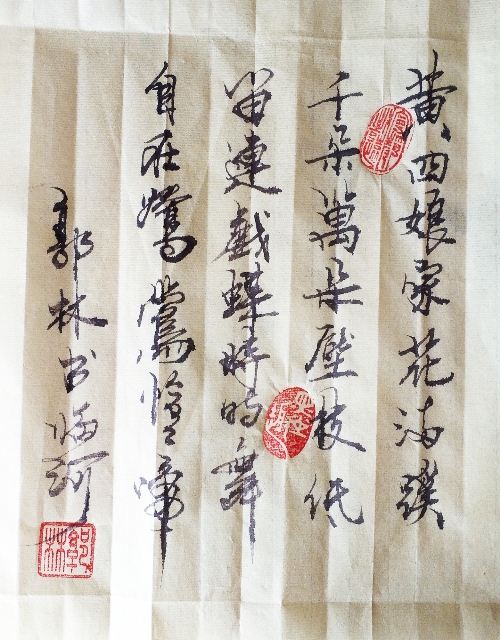 黄四娘家花满蹊
千朵萬朵壓枝低
留連戲蝶時時舞
自在嬌鶯恰〻啼
郭林书临河